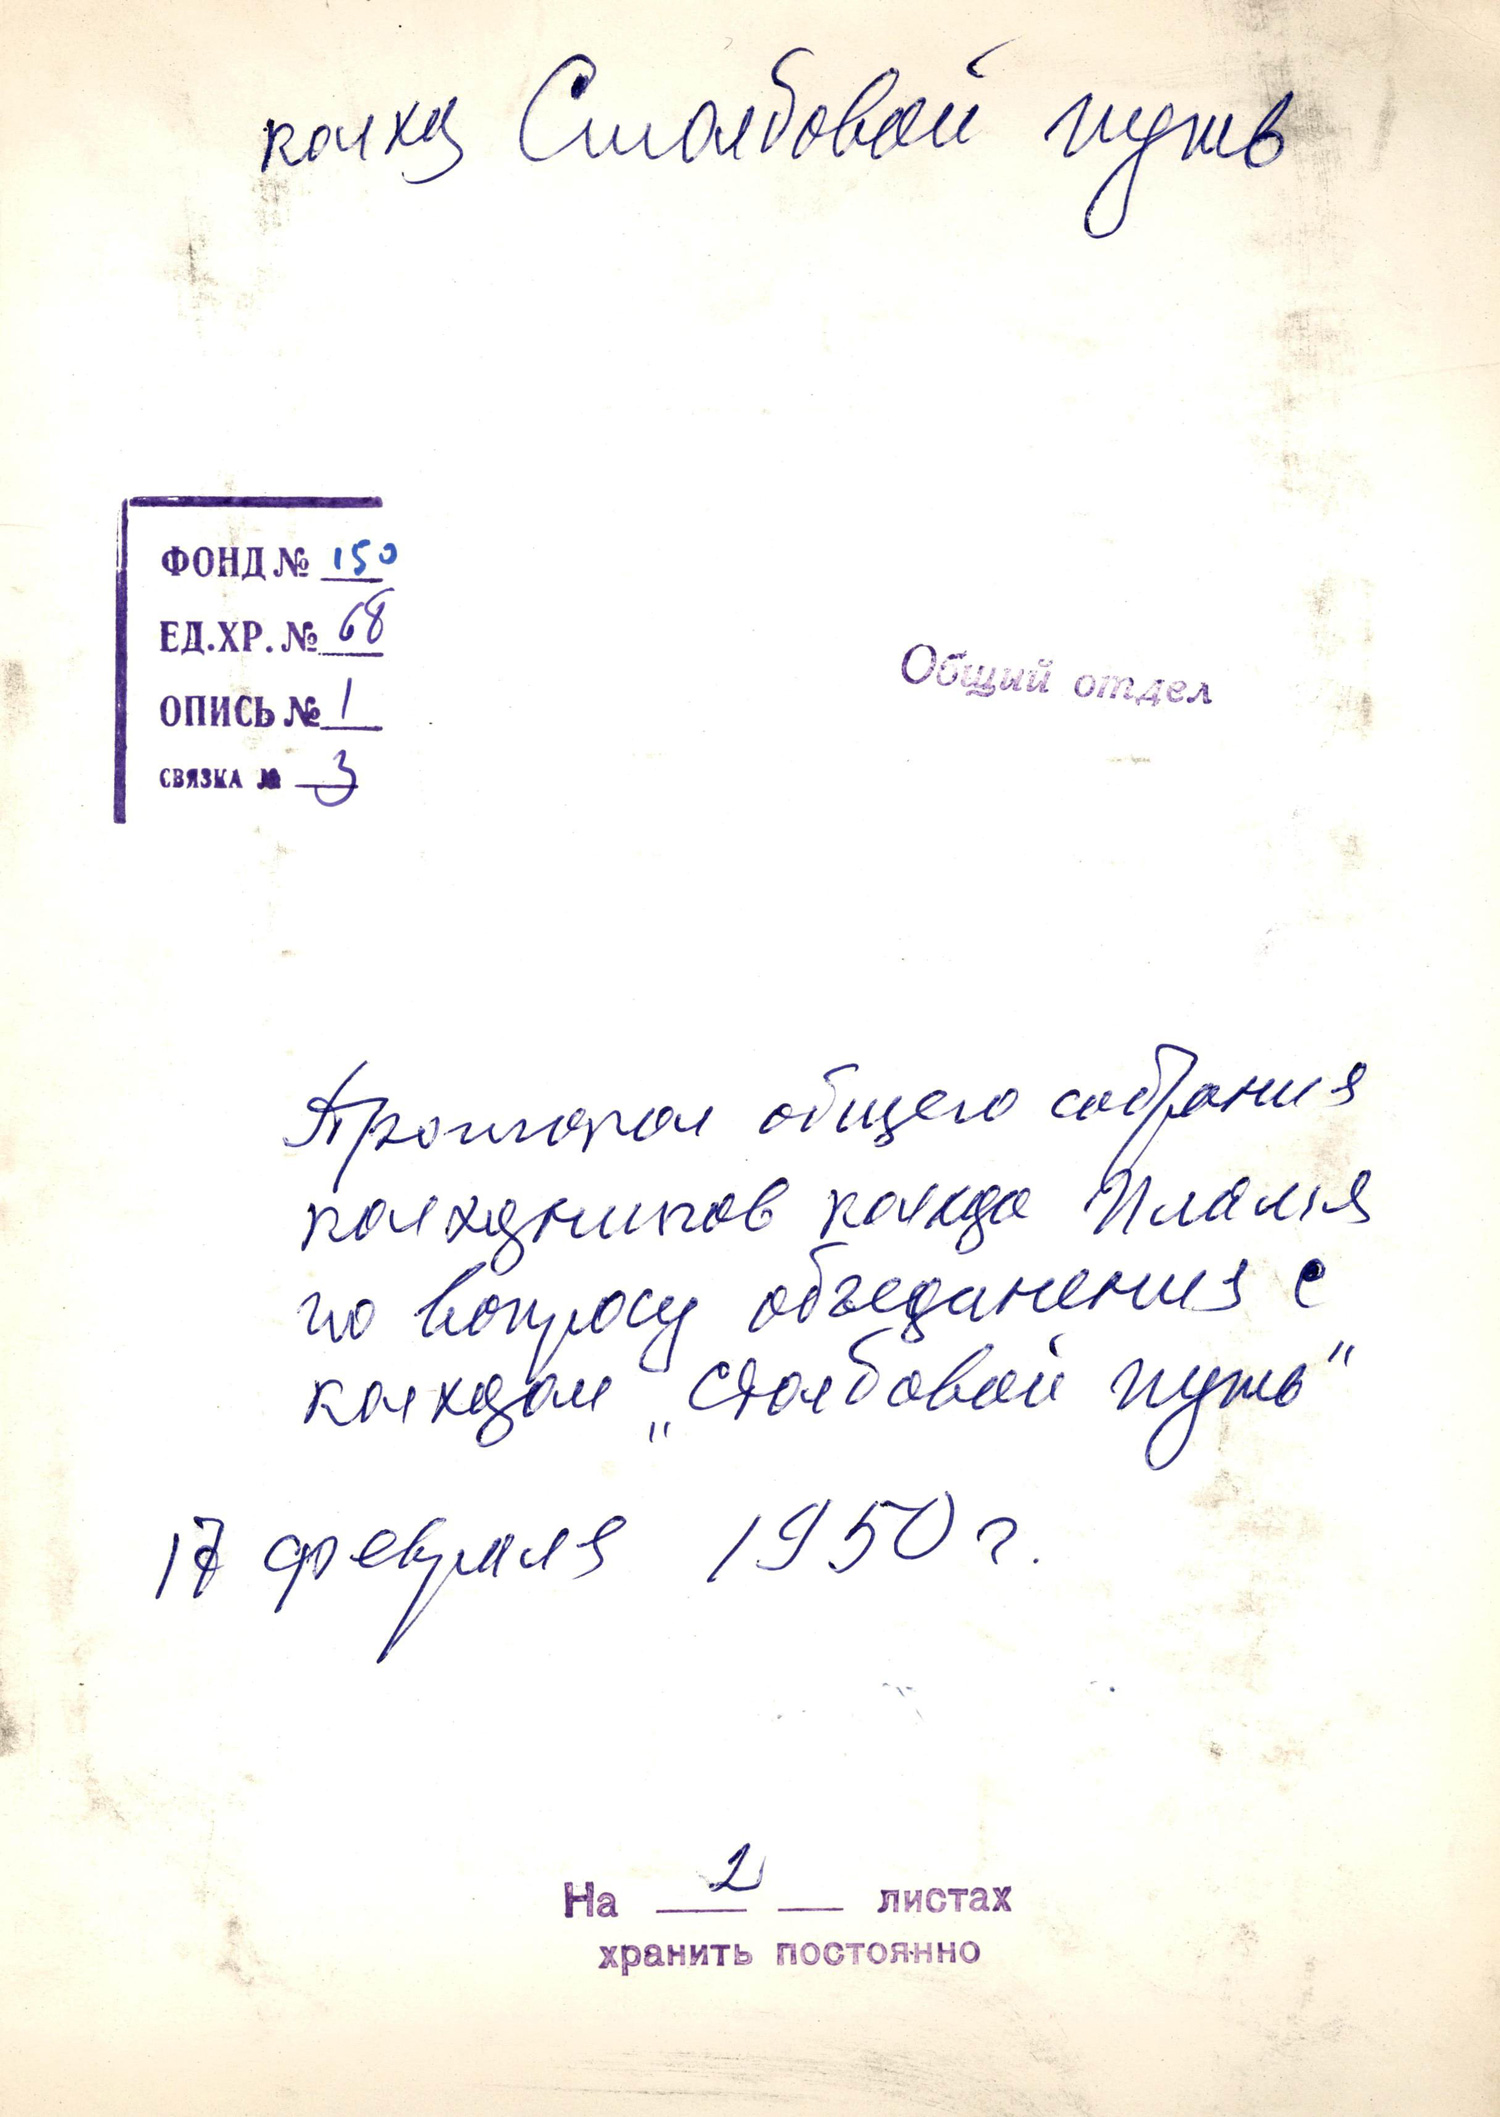 колхоз Столбовой путь
ФОНД № 150
ЕД.ХР. № 68
ОПИСЬ № 1
СВЯЗКА № 3
Общий отдел
Протокол общего собрания
колхозников колхоза Пламя
по вопросу объединения с
колхозом „Столбовой путь"
17 февраля 1950 г.
На 2 листах
хранить постоянно